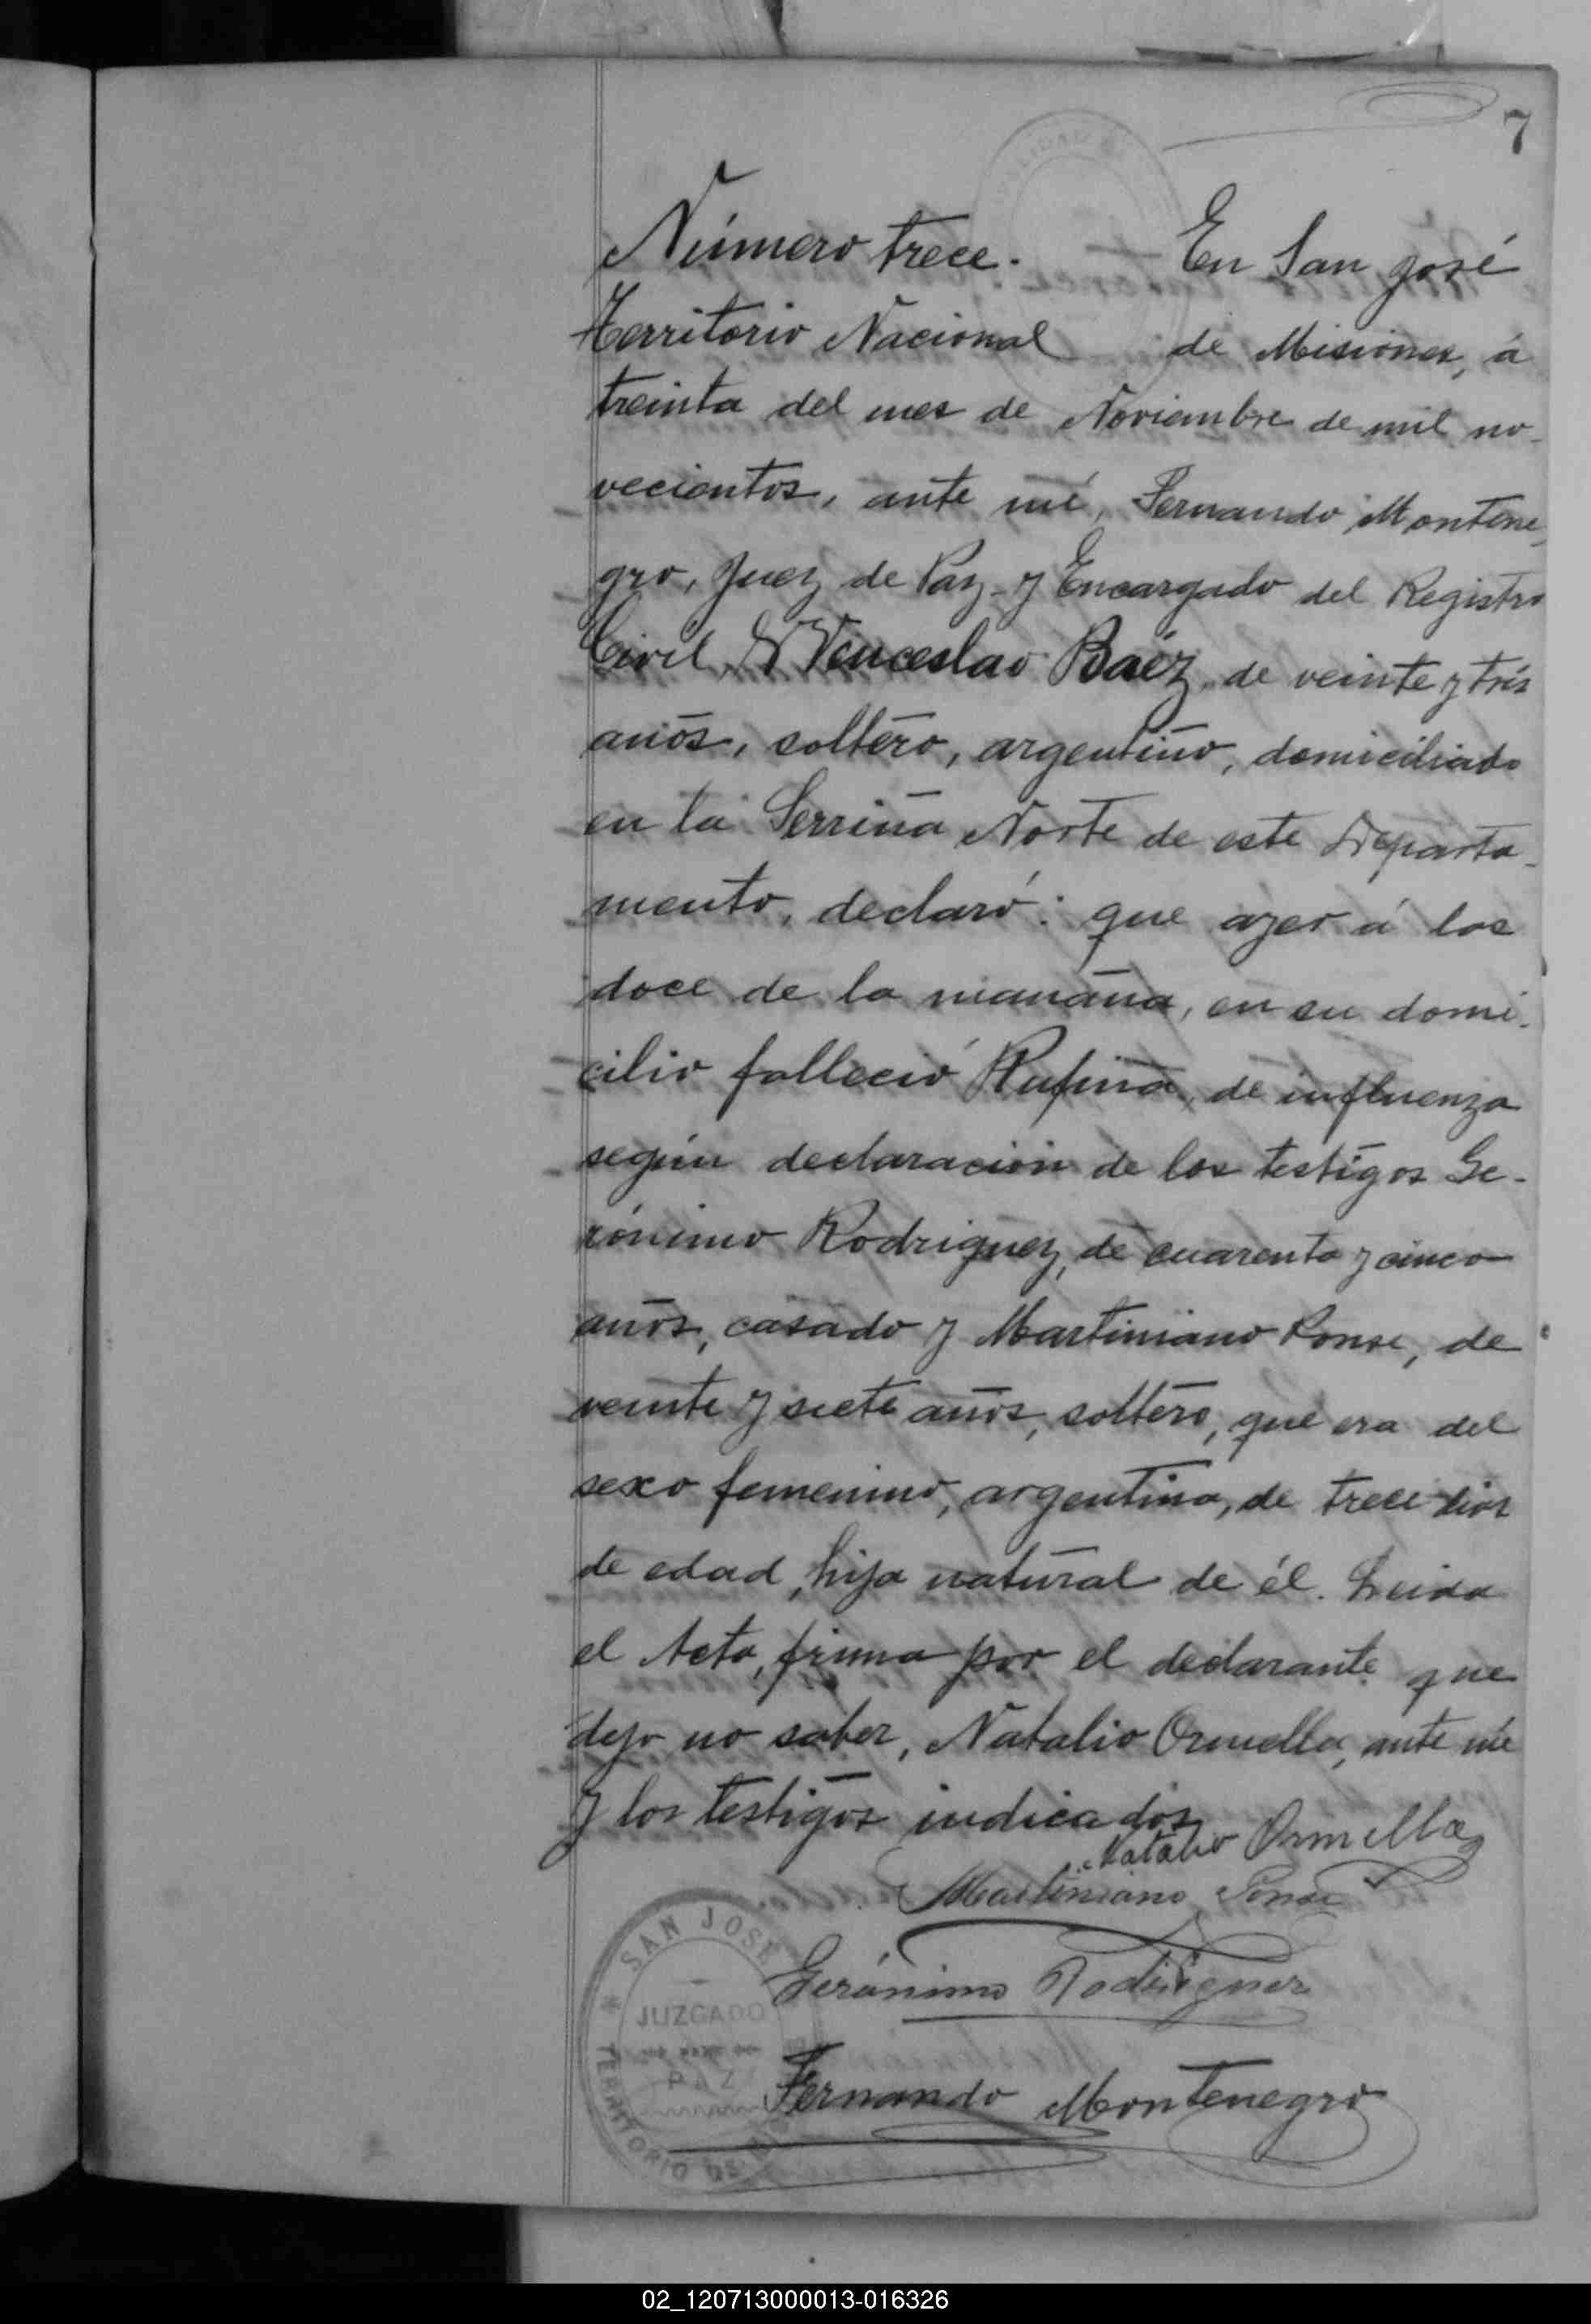 7
Número trece. En San José
Territorio Nacional de Misiones, á
treinta del mes de Noviembre de mil no-
vecientos, ante mí, Fernando Montene-
gro, Juez de Paz y Encargado del Registro
Civil, Wenceslao Baéz, de veinte y trés
años, soltero, argentino, domiciliado
en la Serriña Norte de este Departa-
mento, declaró: que ayer á las
doce de la mañana, en su domi-
cilio falleció Rufina, de influenza
según declaración de los testigos Ge-
rónimo Rodriguez, de cuarenta y cinco
años, casado y Martiniano Ponse, de
veinte y siete años, soltero, que era del
sexo femenino, argentina, de trece dias
de edad, hija natural de él. Leida
el Acta, firma por el declarante que
dijo no saber, Natalio Ormella, ante mí
y los testigos indicados
Natalio Ormella
Martiniano Ponse
Gerónimo Rodriguez
Fernando Montenegro
SAN JOSÉ
JUZGADO
PAZ
TERRITORIO DE
02_120713000013-016326